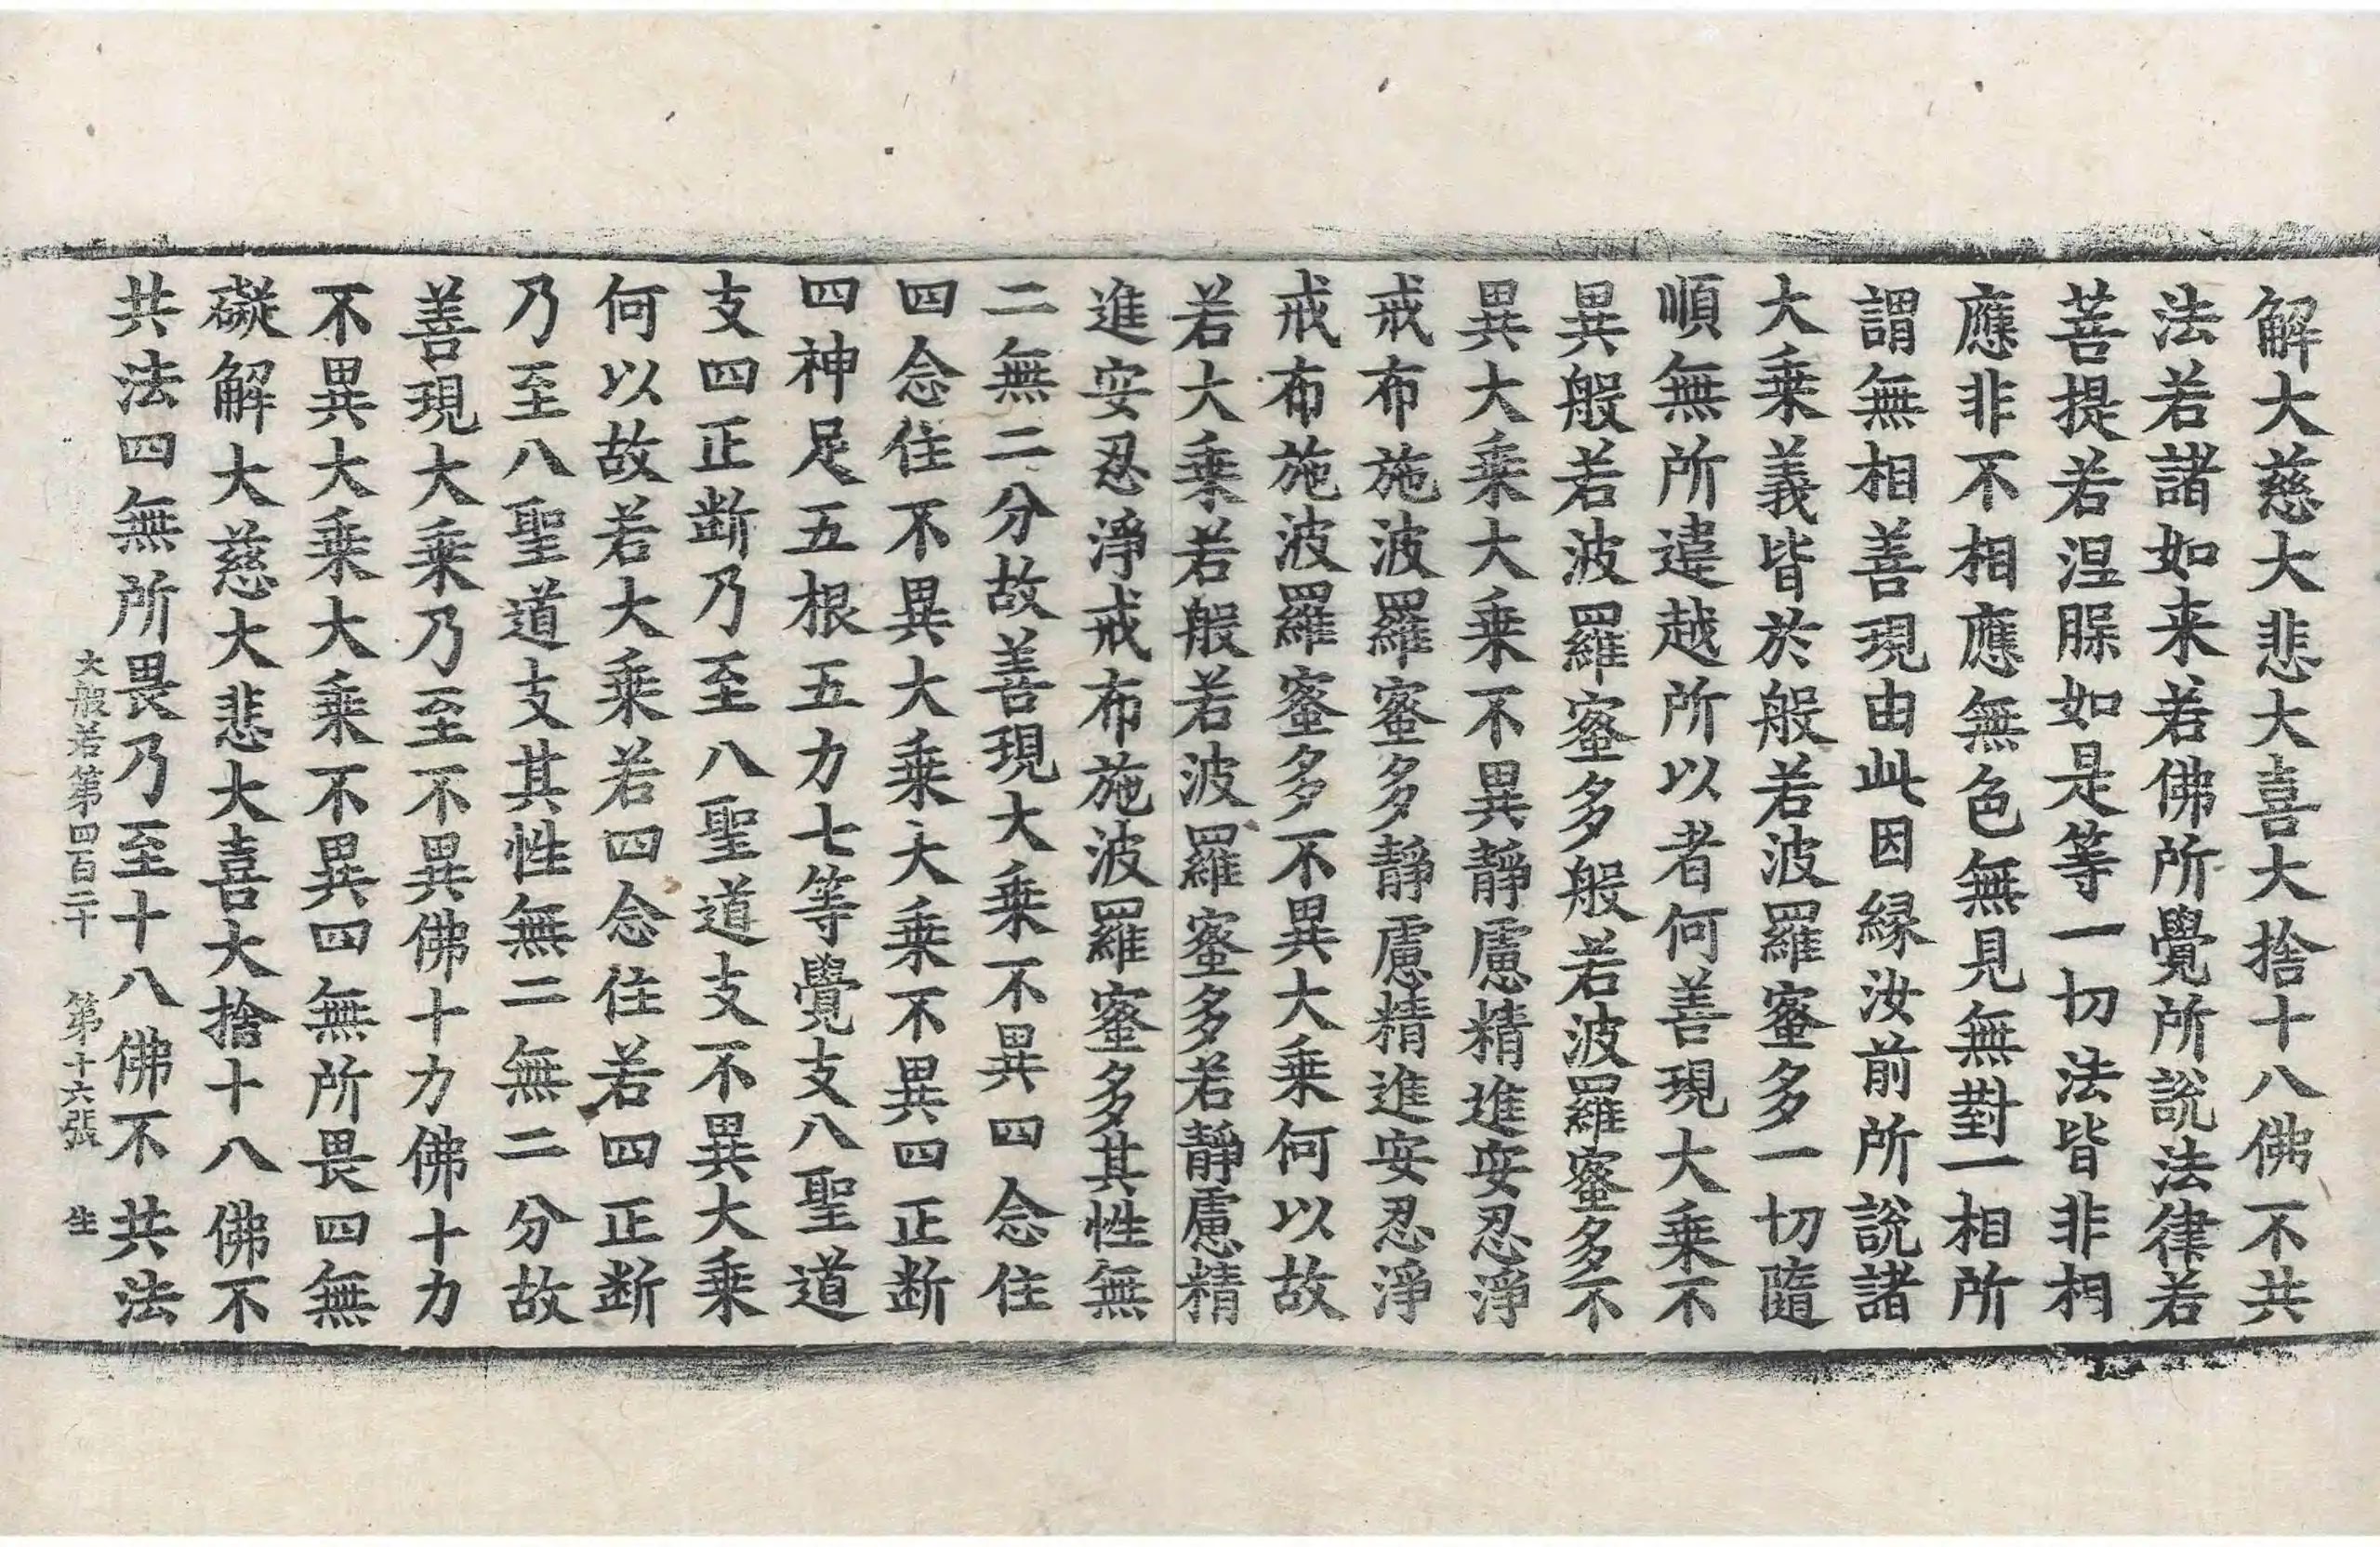 解大慈大悲大喜大捨十八佛不共
法若諸如来若佛所覺所說法律若
菩提若涅槃如是等一切法皆非相
應非不相應無色無見無對一相所
謂無相善現由此因緣汝前所說諸
大乗義皆於般若波羅蜜多一切隨
順無所違越所以者何善現大乗不
異般若波羅蜜多般若波羅蜜多不
異大乗大乗不異靜慮精進安忍淨
戒布施波羅蜜多靜慮精進安忍淨
戒布施波羅蜜多不異大乗何以故
若大乗若般若波羅蜜多若靜慮精
進安忍淨戒布施波羅蜜多其性無
二無二分故善現大乗不異四念住
四念住不異大乗大乗不異四正断
四神足五根五力七等覺支八聖道
支四正断乃至八聖道支不異大乗
何以故若大乗若四念住若四正断
乃至八聖道支其性無二無二分故
善現大乗乃至不異佛十力佛十力
不異大乗大乗不異四無所畏四無
礙解大慈大悲大喜大捨十八佛不
共法四無所畏乃至十八佛不共法
大般若第四百二十　第十六張　生